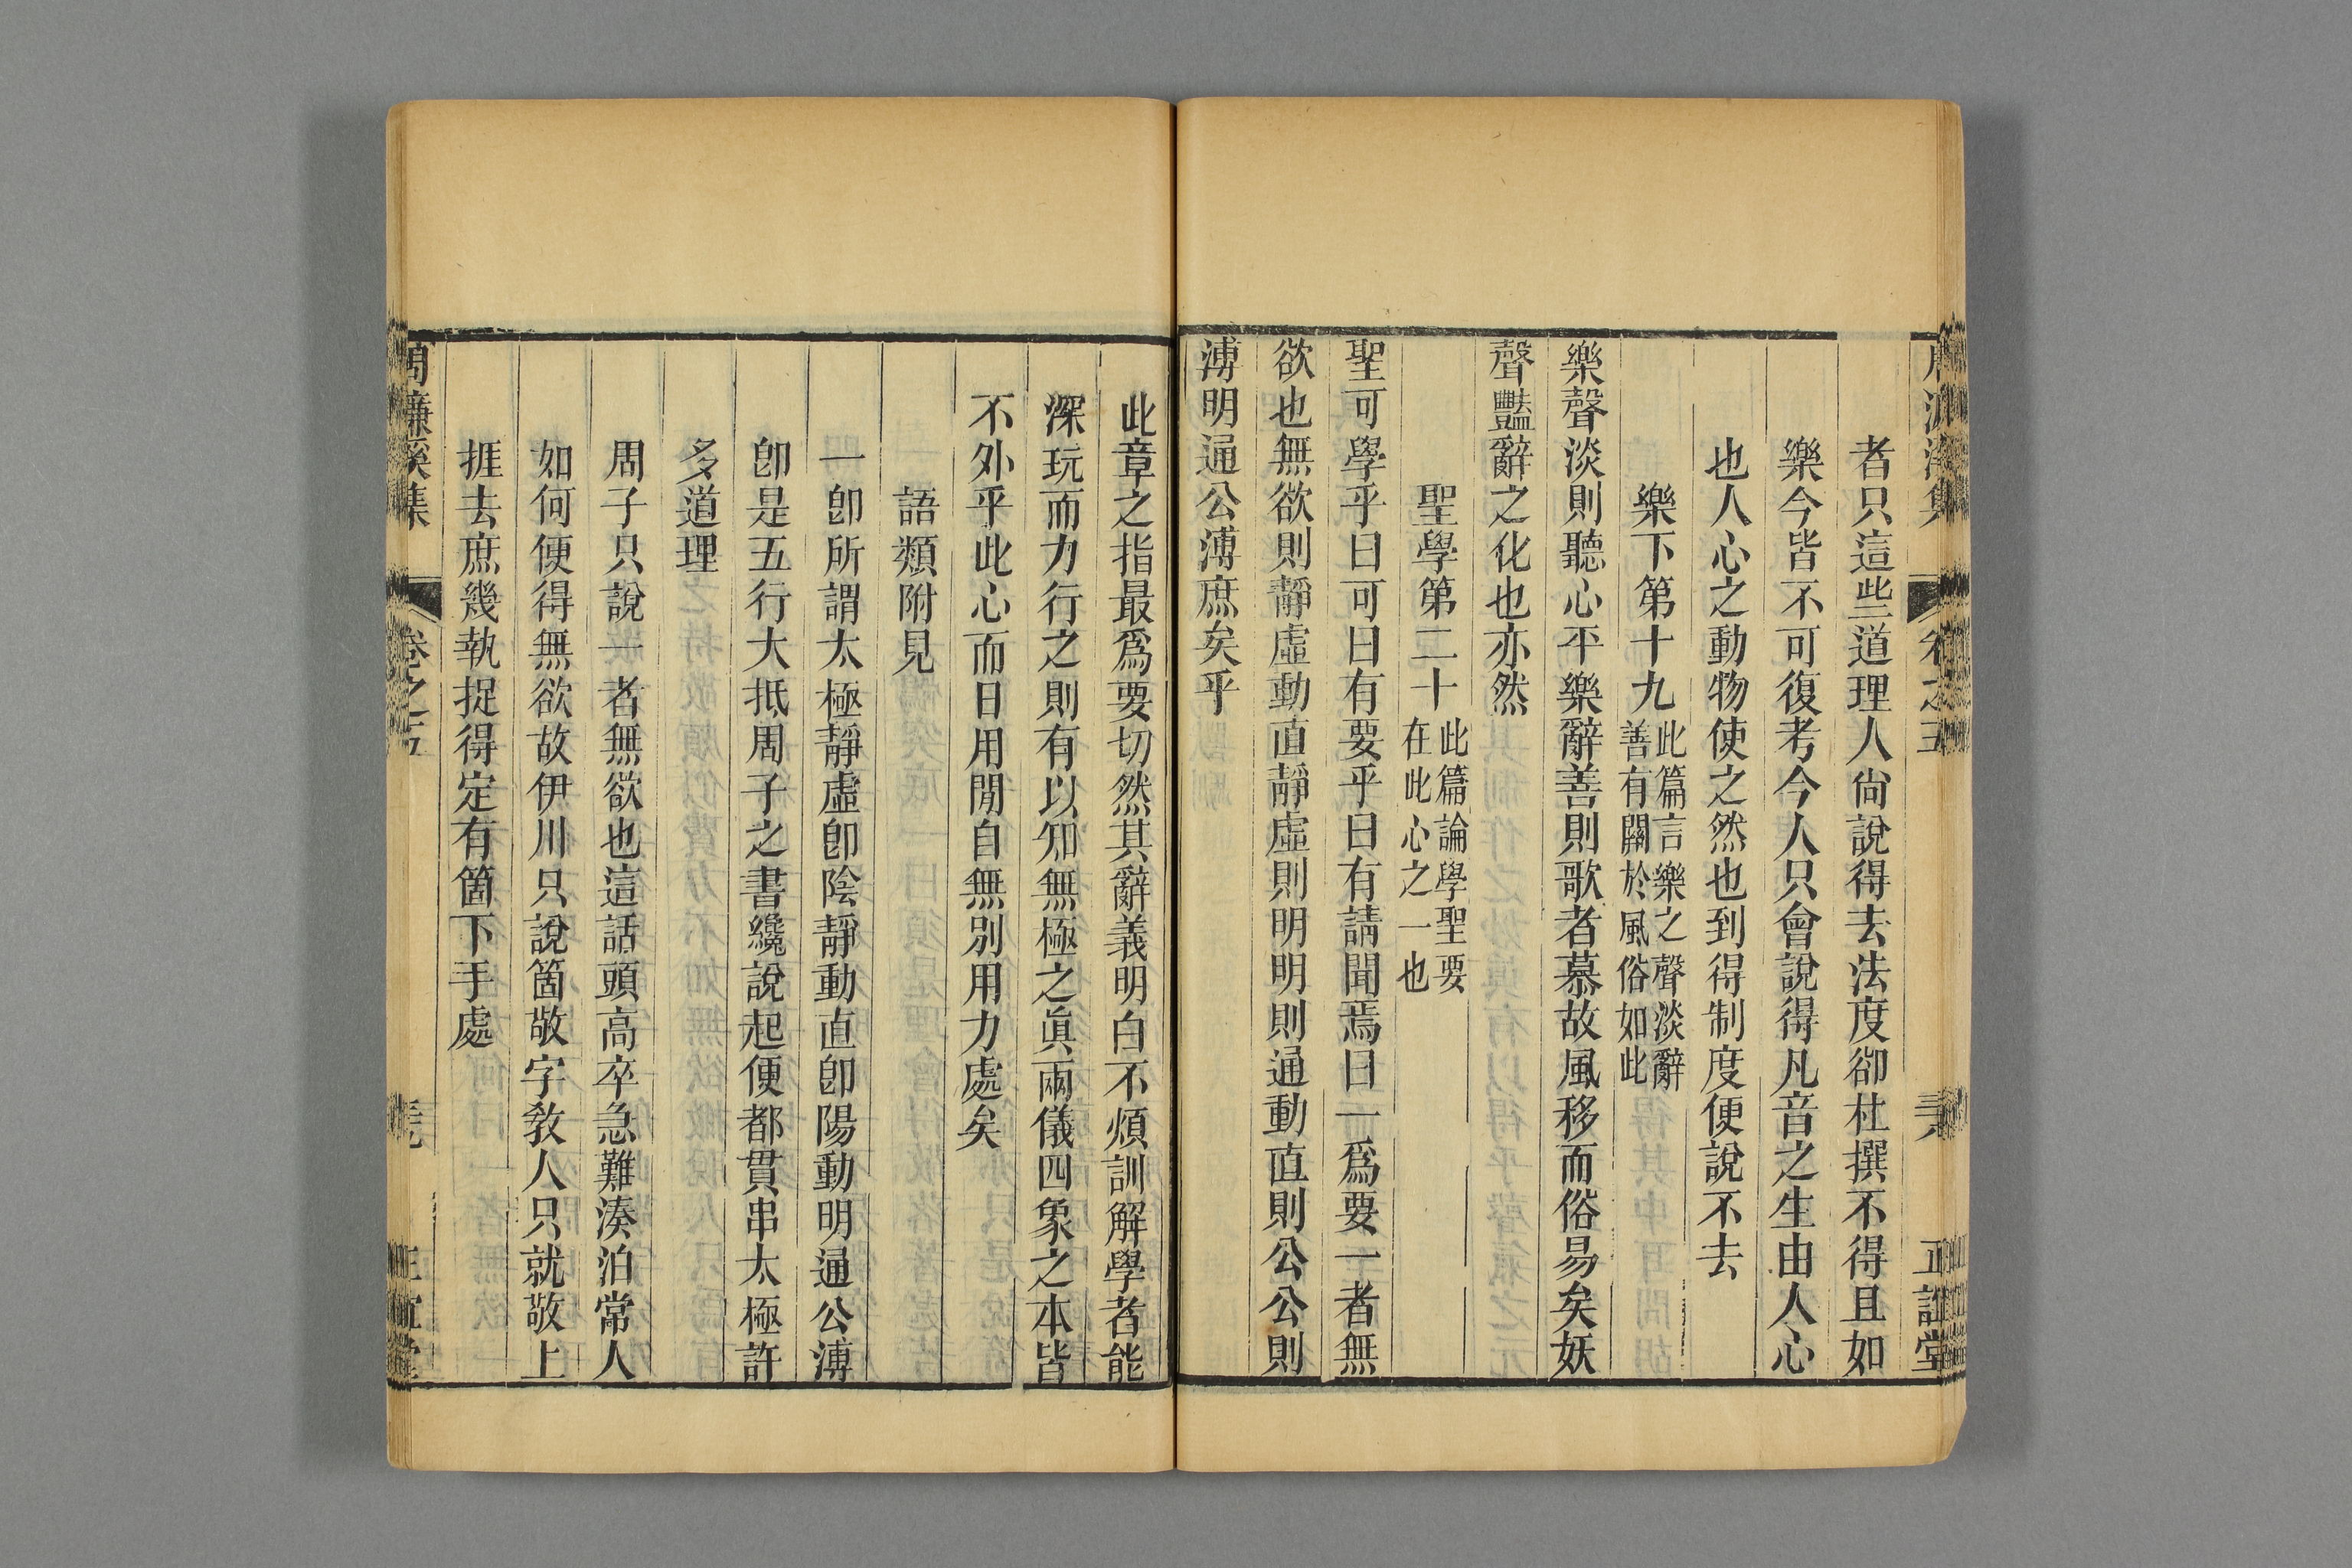 者只這些道理人尙說得去法度卻杜撰不得且如
樂今皆不可復考今人只會說得凡音之生由人心
也人心之動物使之然也到得制度便說不去
樂下第十九此篇言樂之聲淡辭
善有關於風俗如此
樂聲淡則聽心平樂辭善則歌者慕故風移而俗易矣妖
聲豔辭之化也亦然
聖學第二十此篇論學聖要
在此心之一也
聖可學乎曰可曰有要乎曰有請聞焉曰一爲要一者無
欲也無欲則靜虛動直靜虛則明明則通動直則公公則
溥明通公溥庶矣乎
此章之指最爲要切然其辭義明白不煩訓解學者能
深玩而力行之則有以知無極之眞兩儀四象之本皆
不外乎此心而日用閒自無別用力處矣
語類附見
一卽所謂太極靜虛卽陰靜動直卽陽動明通公溥
卽是五行大抵周子之書纔說起便都貫串太極許
多道理
周子只說一者無欲也這話頭高卒急難湊泊常人
如何便得無欲故伊川只說箇敬字敎人只就敬上
捱去庶幾執捉得定有箇下手處
周濂溪集
卷之五